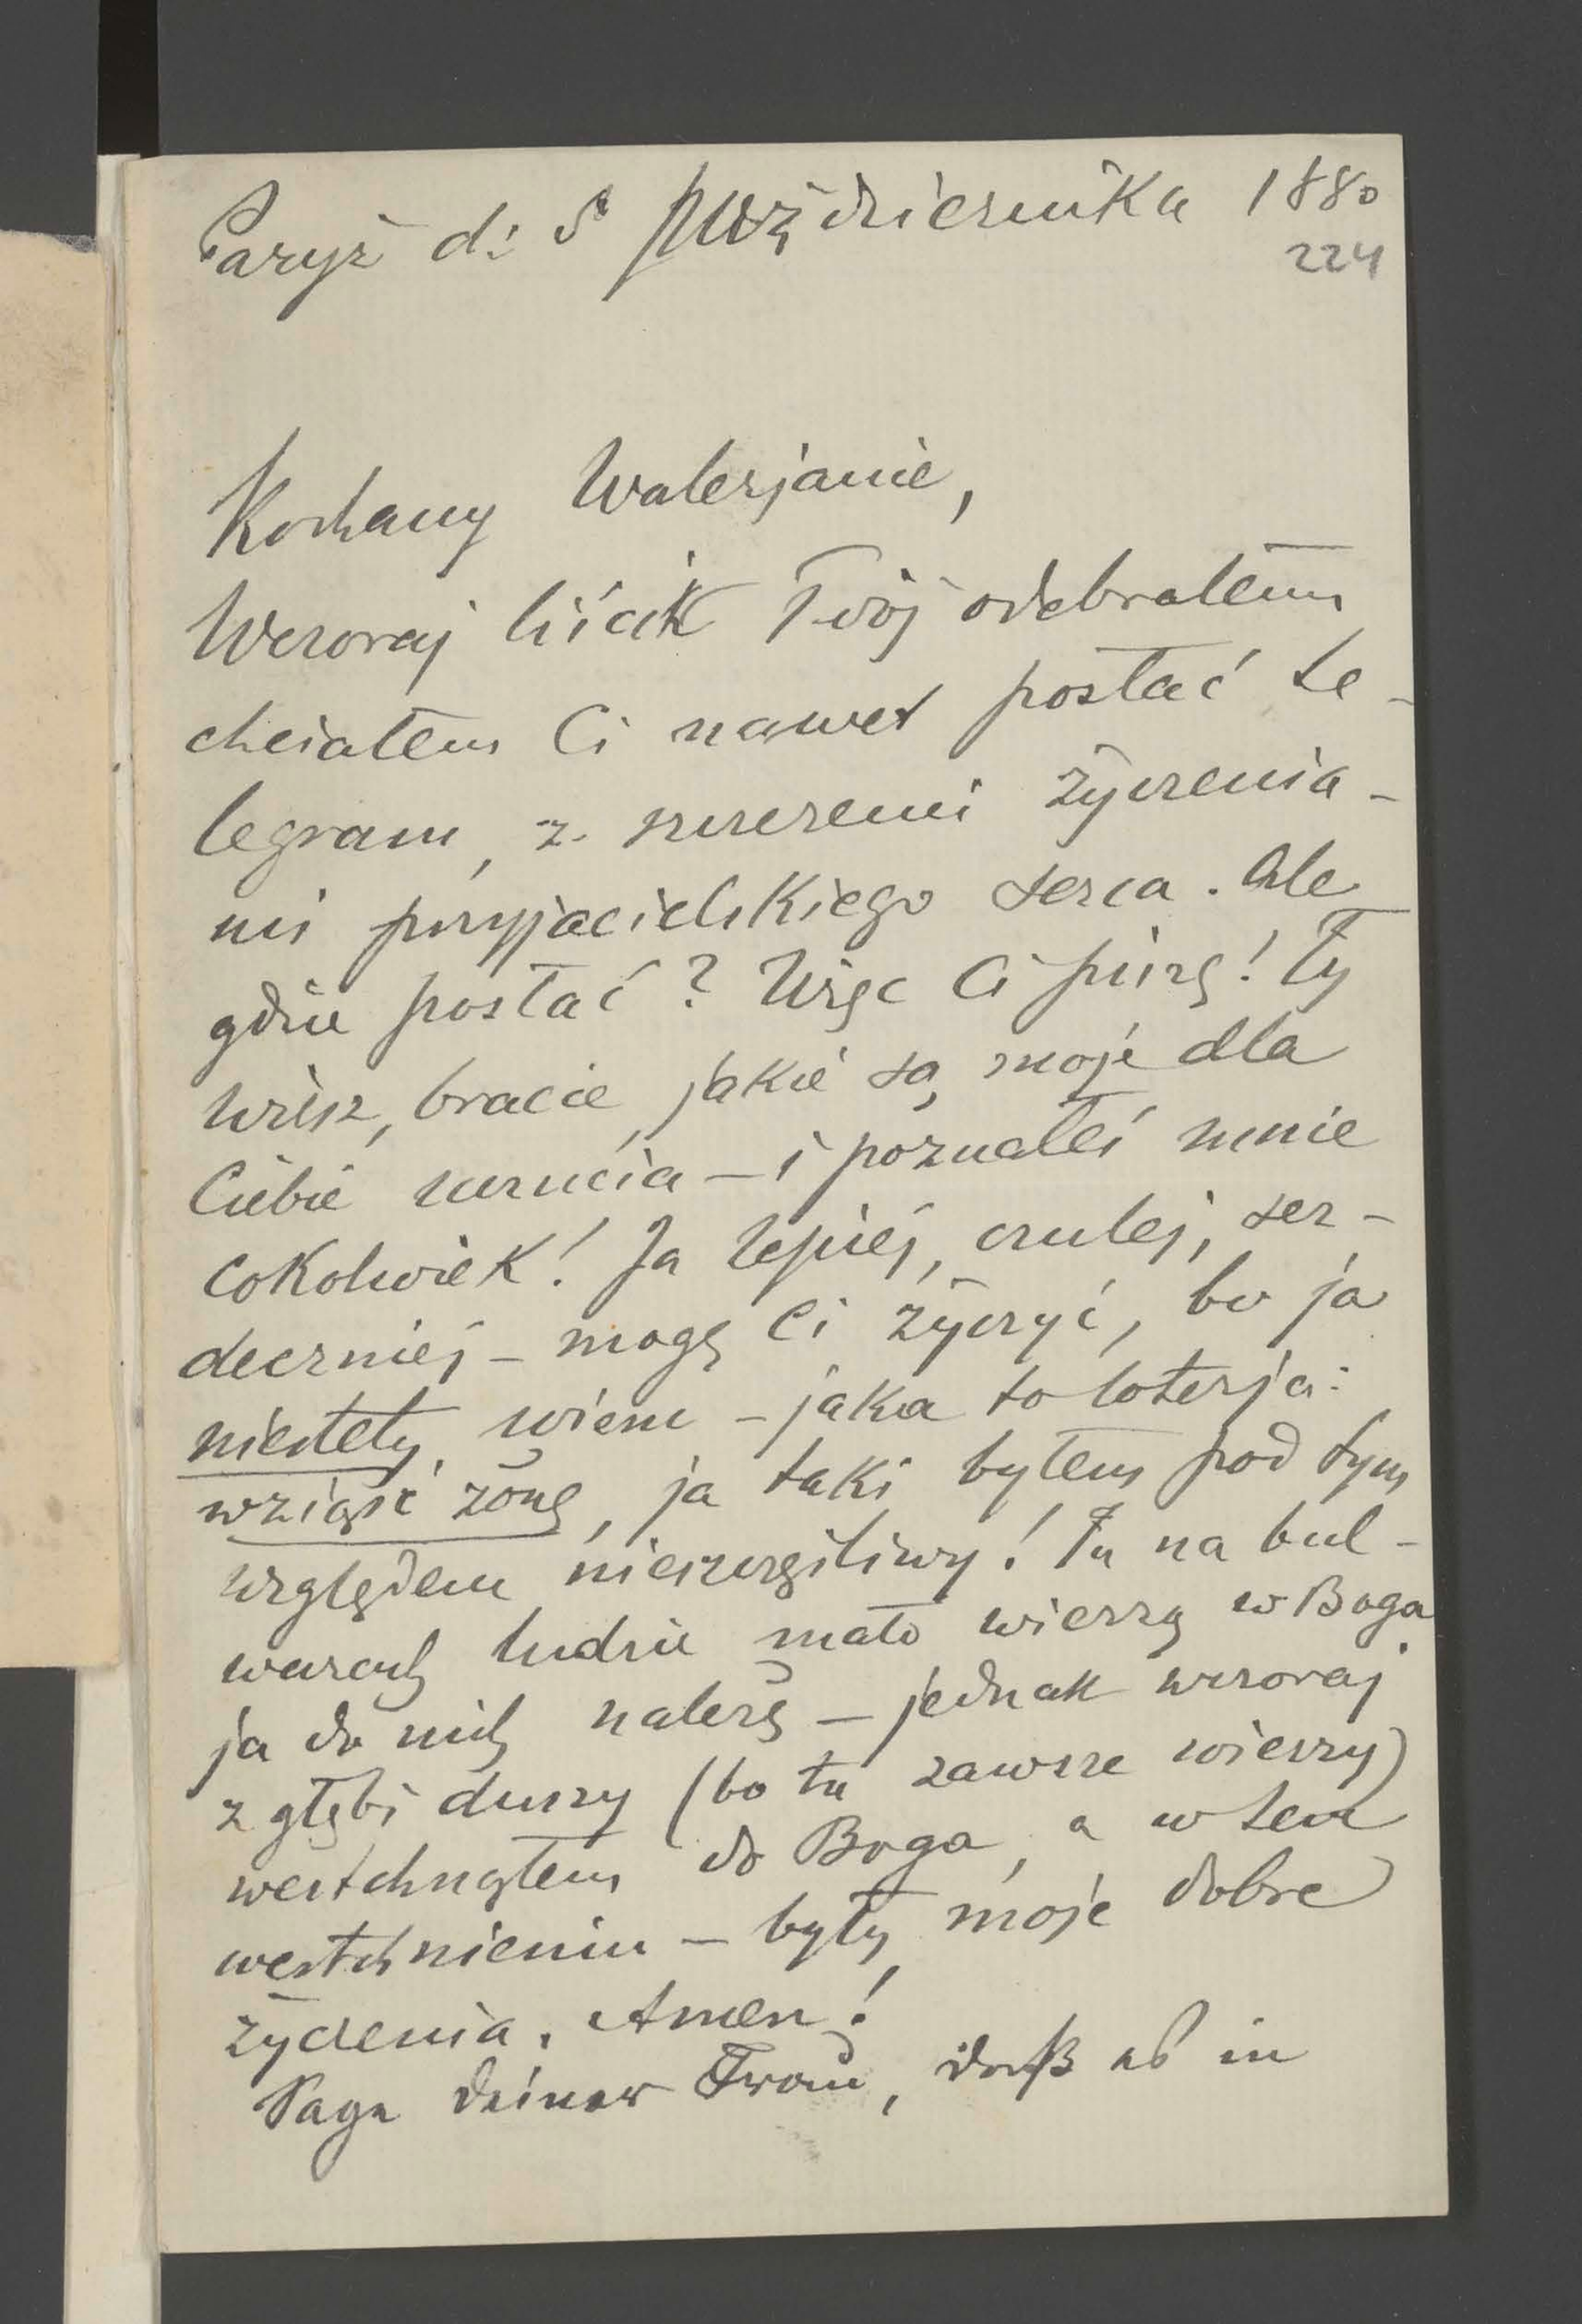 Paryż d: 5 października 1880
224
Kochany Walerjanie,
Wczoraj liścik Twój odebrałem
chciałem Ci nawet posłać te-
legram, z szczeremi życzenia-
mi przyjacielskiego serca. Ale
gdzie posłać? Więc Ci piszę! Ty
wiesz, bracie, jakie są moje dla
Ciebie uczucia – i poznałeś mnie
cokolwiek! Ja lepiej, czulej, ser-
deczniej – mogę Ci życzyć, bo ja
niestety wiem – jaka to loterja:
wziąść żonę, ja taki byłem pod tym
względem nieszczęśliwy! Tu na bul-
warach ludzie mało wierzą w Boga
ja do nich należę – jednak wczoraj
z głębi duszy (bo ta zawsze wierzy)
westchnąłem do Boga, a w tem
westchnieniu – były moje dobre
życzenia. Amen!
Sage deiner Frau, daß es in